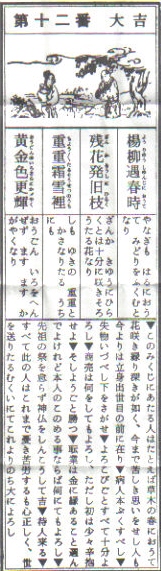 第十二番 大吉
楊柳遇春時
残花発旧枝
重重霜雪裡
黄金色更輝
やなぎも はるにおう
て みどりをふくむと
しも ゆきの 重重と
かさなりたる うち
にも
おうごん いろをへん
ぜず ますます か
がやくなり
▼このみくじにあたる人はたとえば青木の春におうて
花咲き緑り深きが如く、今まで苦しき思いをせし人も
今よりは立身出世目の前に在り▼病人本ぷくすべし▼
失物いづべし下をさがせ▼よろこびごとすべて十分よ
ろし▼商売は何をしてもよろし、ただし初は少々辛抱
せよ▼そしようごと勝つ▼取業は金に縁あること選ん
でよけれど本人のこのめる事ならば何にてもよろし▼
先祖の祭を怠らず神仏をしんこうして吉▼待人来る▼
すべて此の人はこれまで憂き苦労するも心正しく、世
を送りたるむくいにてこれよりのちによろし